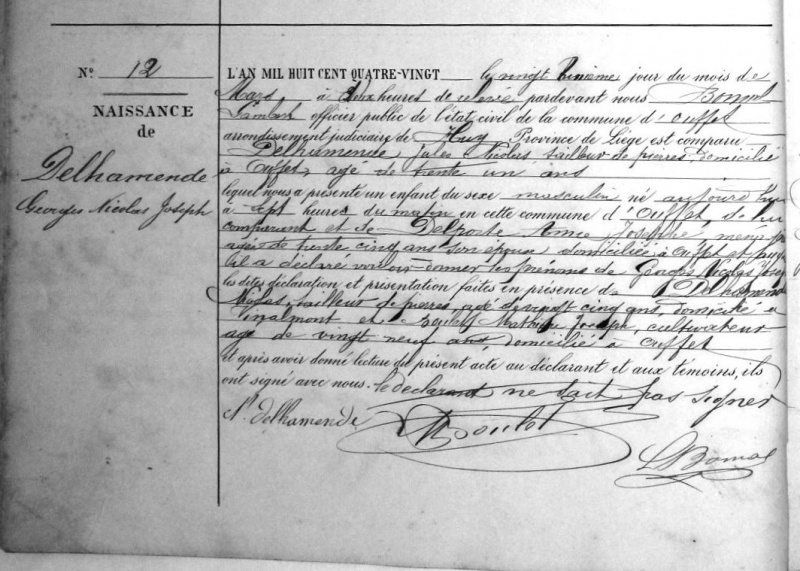 N° 12
NAISSANCE
de
Delhamende
Georges Nicolas Joseph
L'AN MIL HUIT CENT QUATRE-VINGT le vingt unième jour du mois de
Mars à deux heures de relevée pardevant nous Bomal
Lambert officier public de l'état civil de la commune d'Ouffet
arrondissement judiciaire de Huy Province de Liège est comparu
Delhamende, Jules Nicolas tailleur de pierres domicilié
à Ouffet, agé de trente un ans
lequel nous a présenté un enfant du sexe masculin né aujourd'hui
à sept heures du matin en cette commune d'Ouffet, de lui
comparant et de Delporte Anne Josephe
agée de trente cinq ans son épouse domiciliée à Ouffet et auquel
il a déclaré vouloir donner les prénoms de Georges Nicolas Joseph
les dites déclaration et présentation faites en présence de Delhamende
Nicolas, tailleur de pierres, agé de vingt cinq ans, domicilié à
Vinalmont et de Joseph, cultivateur
agé de vingt neuf ans, domicilié à Ouffet
et après avoir donné lecture du présent acte au déclarant et aux témoins, ils
ont signé avec nous. le déclarant ne sait pas signer
N Delhamende
L Bomal